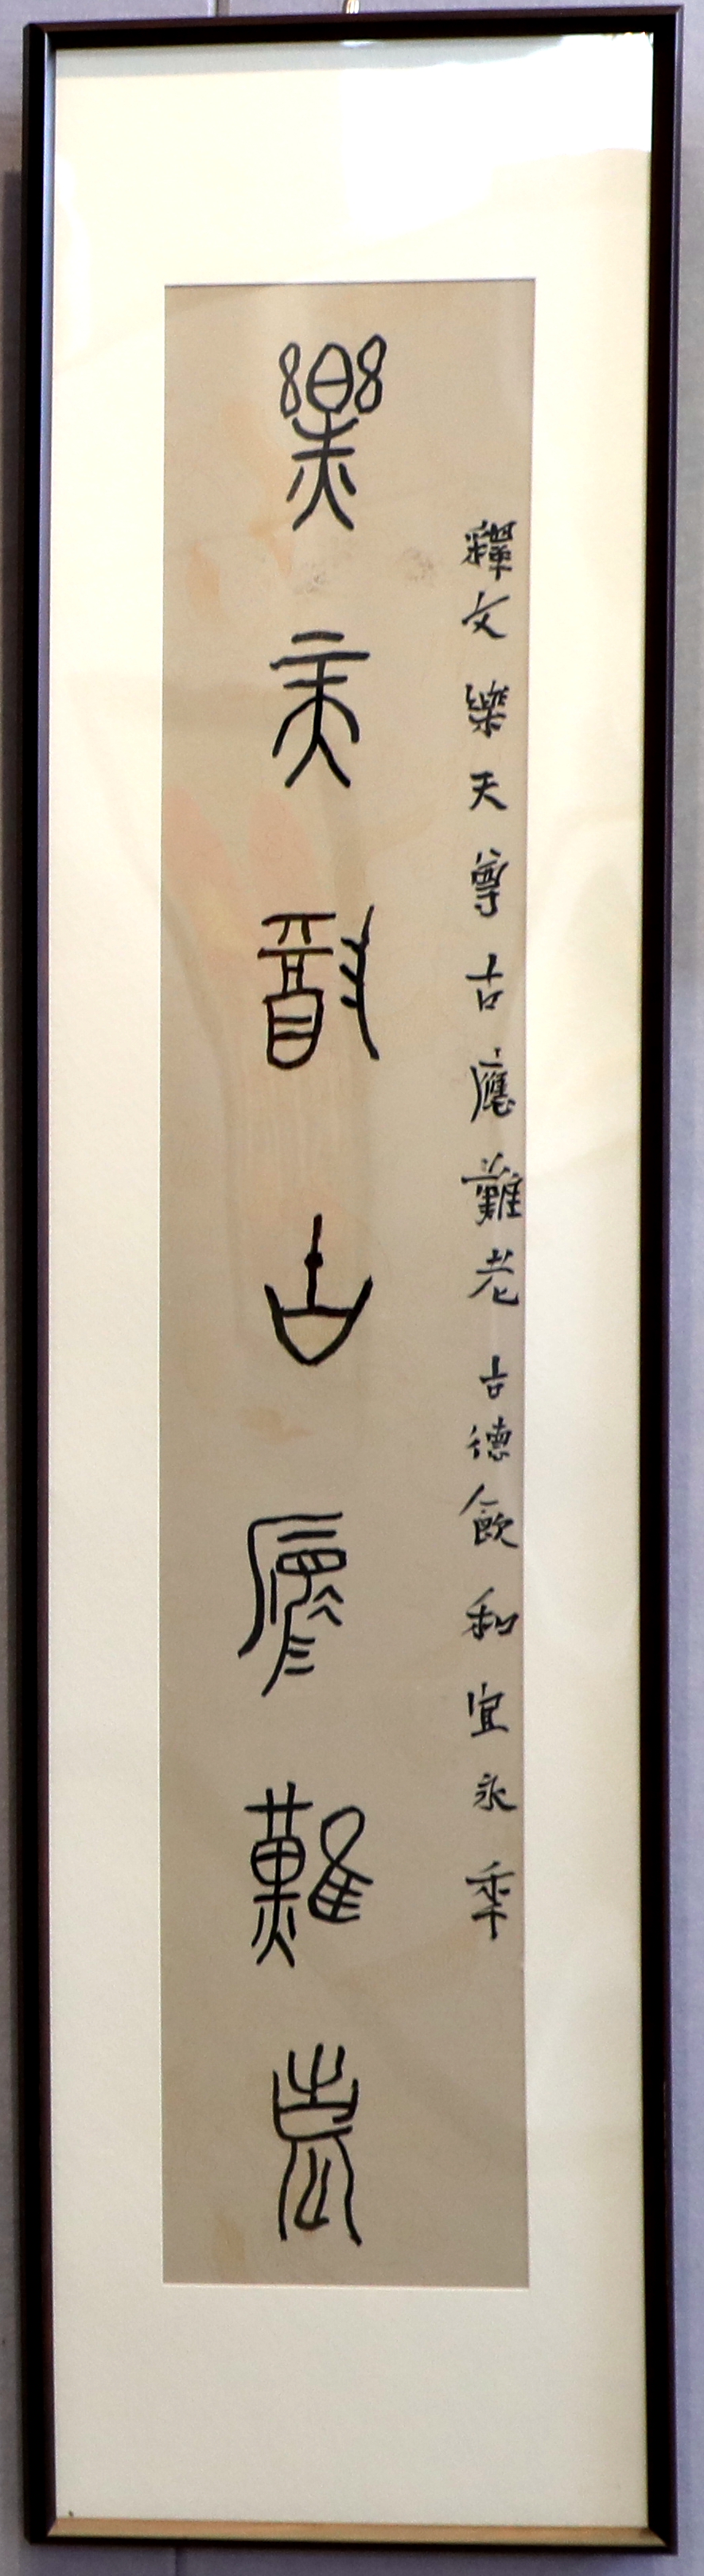 釋文 樂天尊古應難老 古德飲和宜永秊
樂天尊古應難老